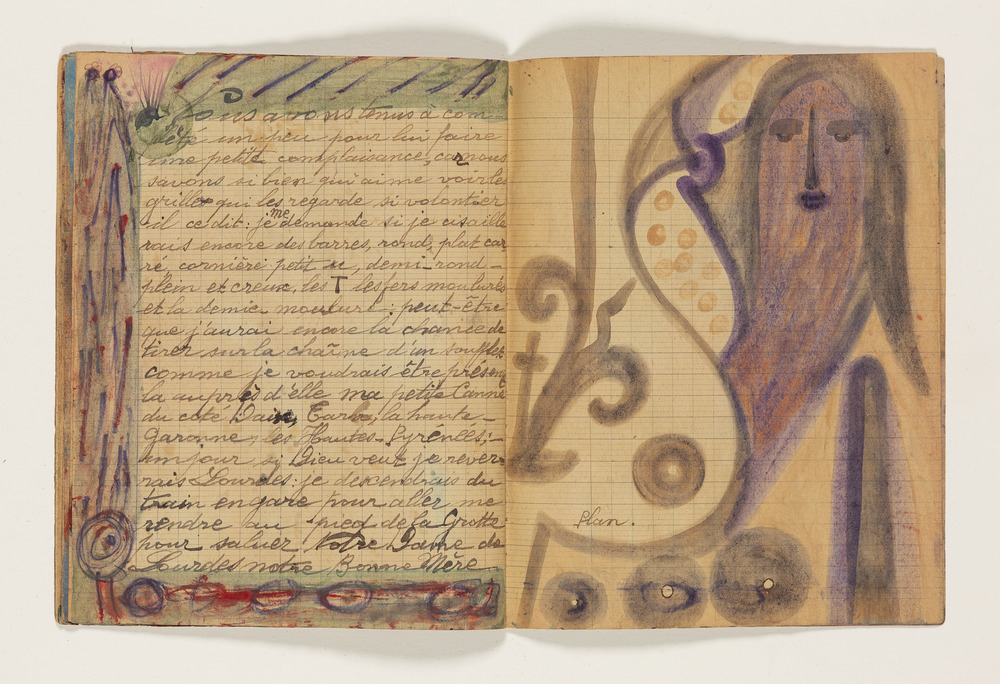 ous avons tenus à com-
un peu pour lui faire
une petite complaisance, car nous
savons si bien qui aime voir les
grilles qui les regarde si volontier
il ce dit: je me demande si je cisaille
rais encore des barres, rond, plat car
ré, cornière petit u, demi-rond-
plein et creux, les T les fers moulurés
et la demie moulure: peut-être
que j'aurai encore la chance de
tirer sur la chaîne d'un soufflet
comme je voudrais être présent
la auprès d'elle ma petite Canne
du coté Tarbe, la haute-
Garonne, les Hautes-Pyrénées;
un jour, si Dieu veut je rever-
rais Lourdes: je descendrais du
train en gare pour aller me
rendre au pied de la Grotte
pour saluer Notre Dame de
Lourdes notre Bonne Mère
Plan.